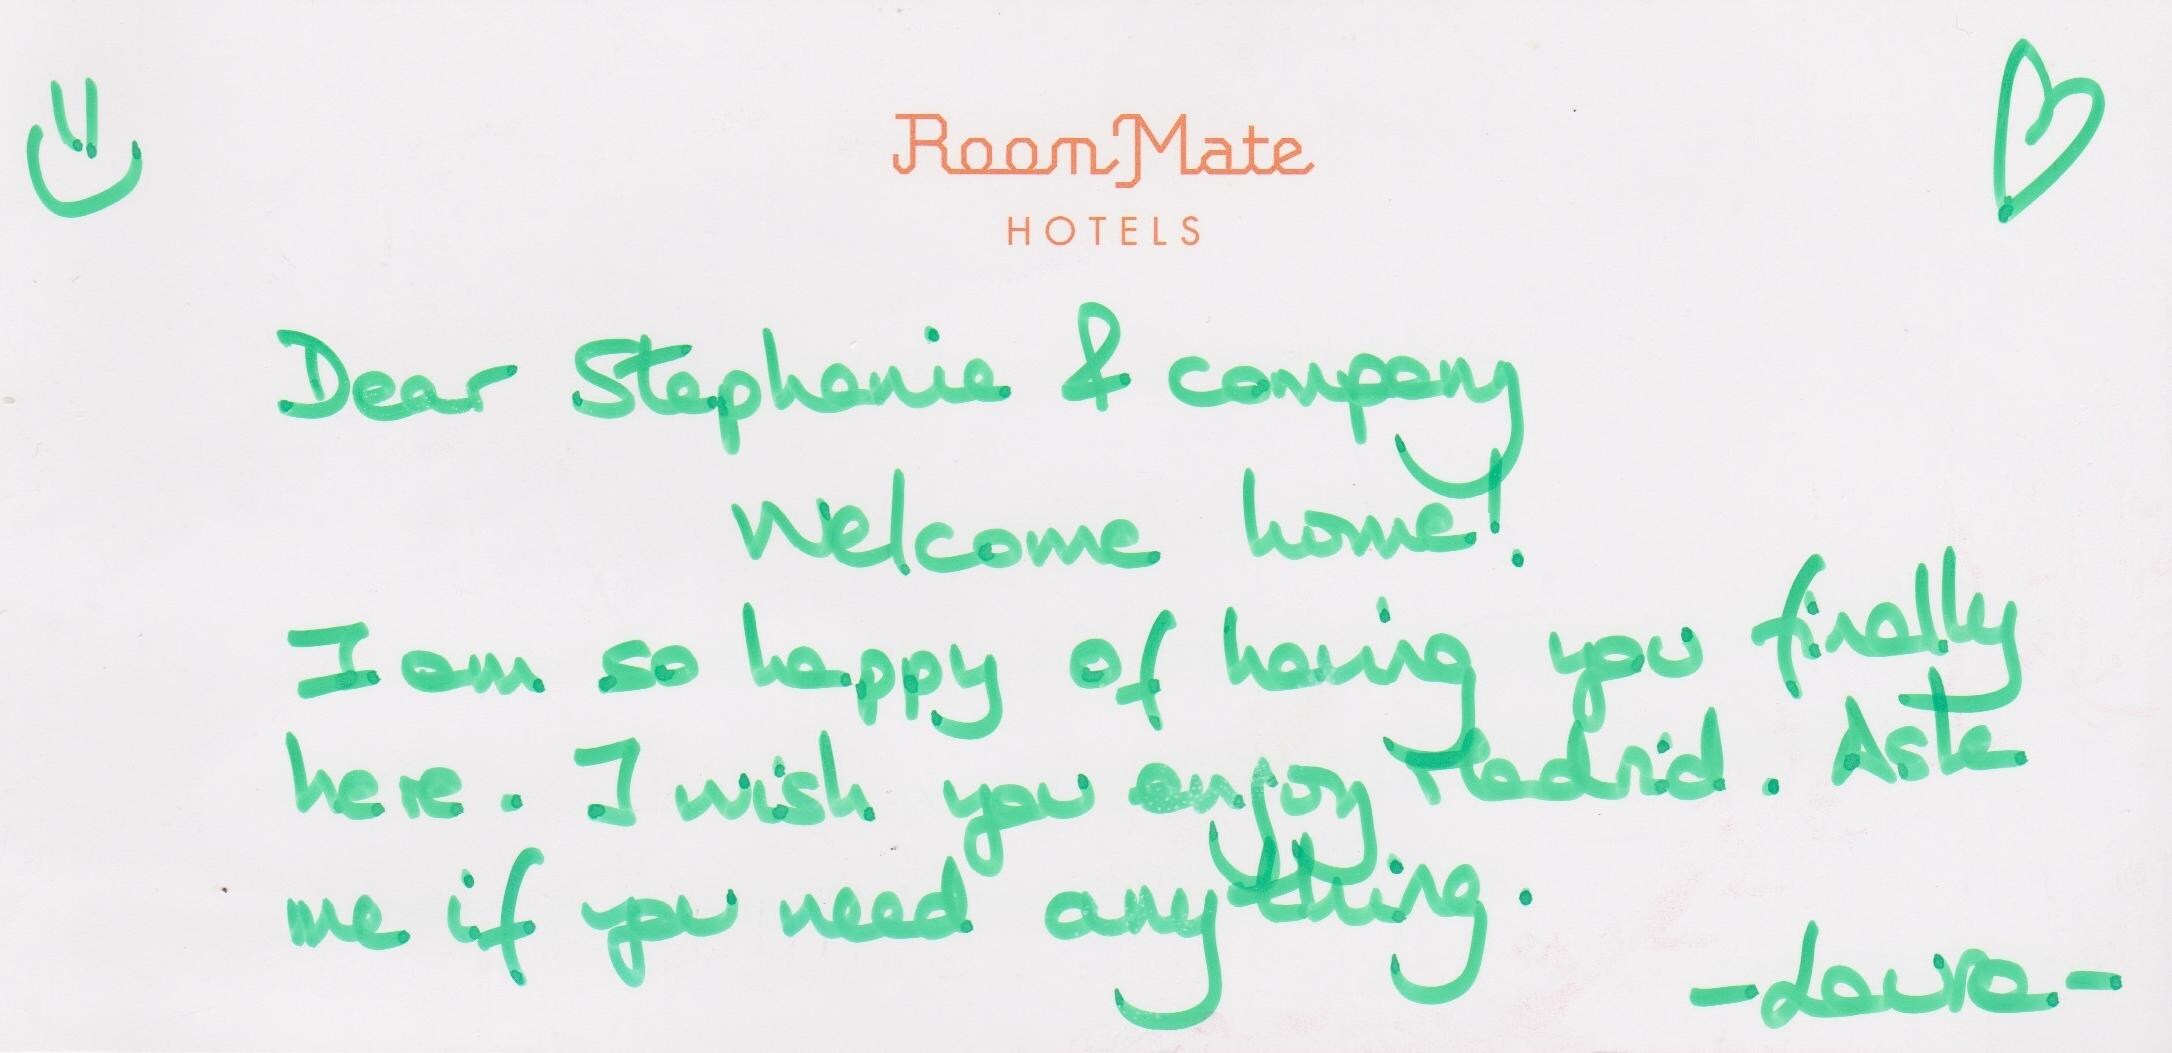 Room Mate
HOTELS
Dear Stephanie & company
Welcome home!
I am so happy of having you finally
here. I wish you enjoy Madrid. Aste
me if you need anything.
-Laura-